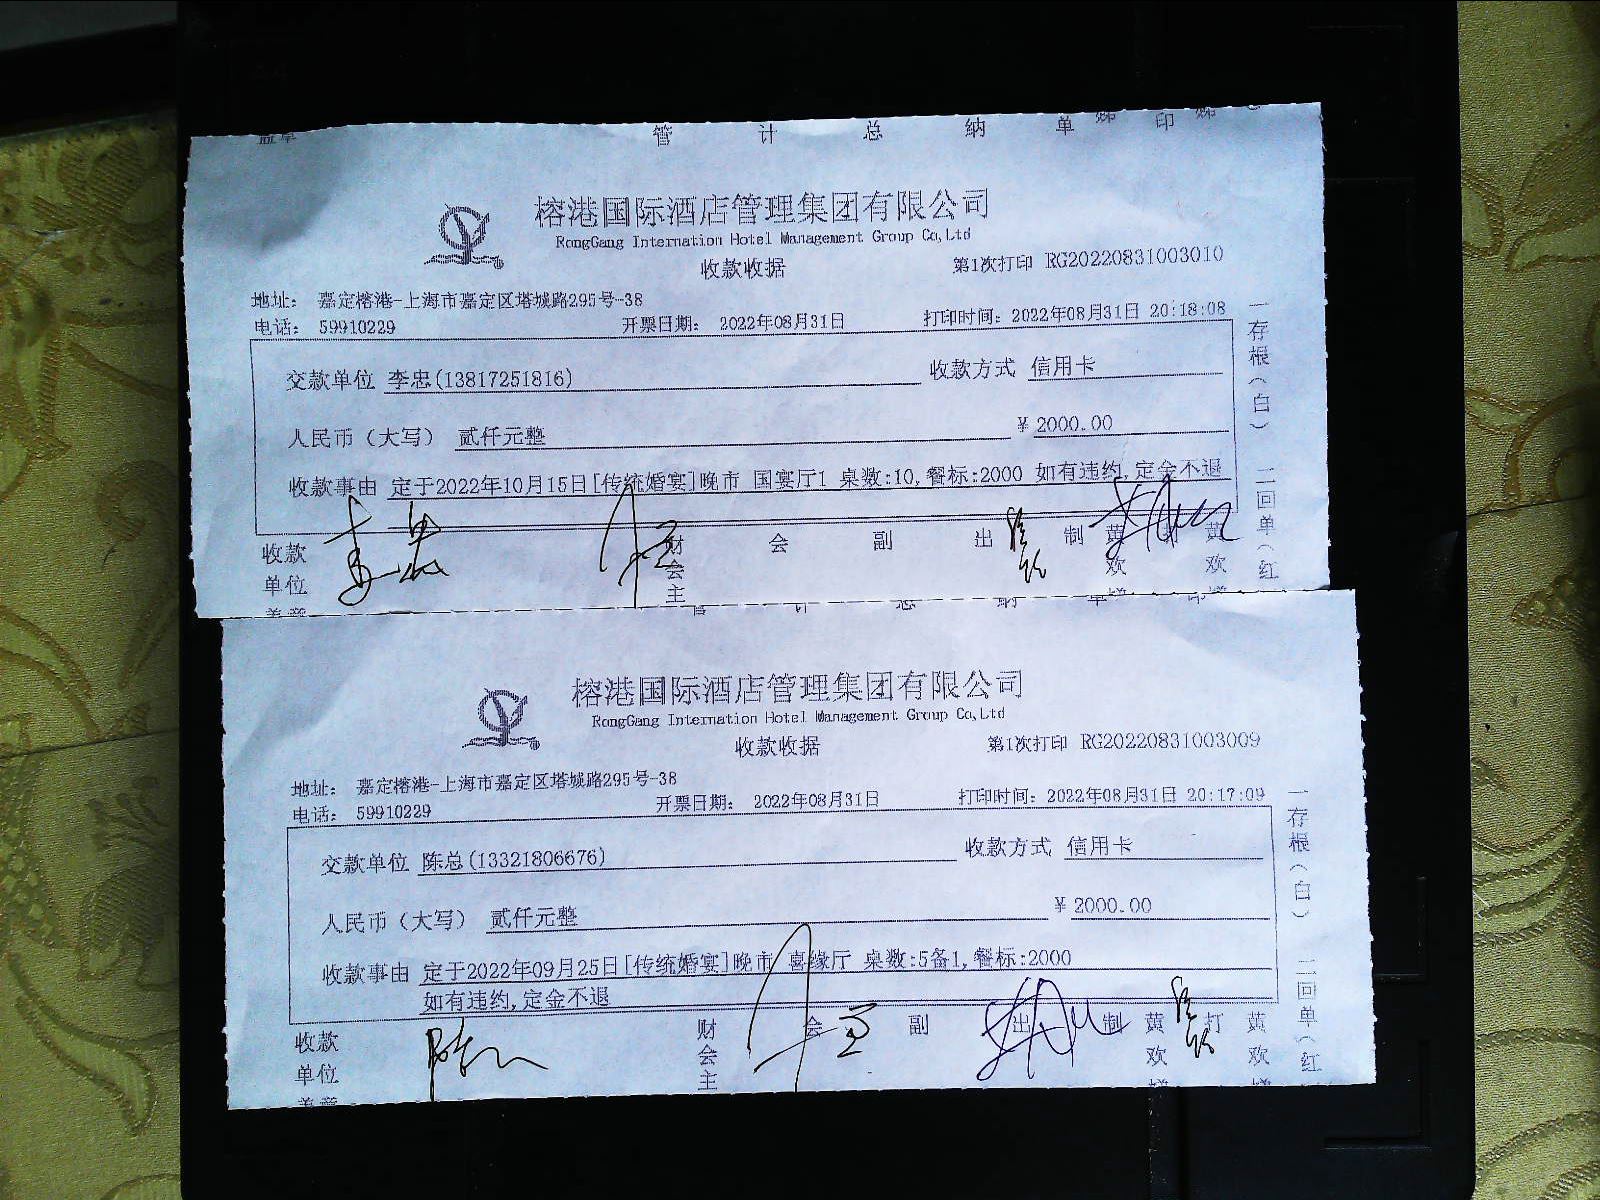 管 计 总 纳 单 印
榕港国际酒店管理集团有限公司
RongGang Internation Hotel Management Group Co,Ltd
收款收据
第1次打印 RG20220831003010
地址: 嘉定榕港-上海市嘉定区塔城路295号-38
电话: 59910229
开票日期: 2022年08月31日
打印时间: 2022年08月31日 20:18:08
交款单位 李忠(13817251816)
收款方式 信用卡
人民币（大写） 贰仟元整
¥ 2000.00
收款事由 定于2022年10月15日[传统婚宴]晚市 国宴厅1 桌数:10,餐标:2000 如有违约,定金不退
一存根（白） 二回单（红
收款 财 会 副 出 制 黄 黄
单位 会 欢 欢
盖章 主
李忠
榕港国际酒店管理集团有限公司
RongGang Internation Hotel Management Group Co,Ltd
收款收据
第1次打印 RG20220831003009
地址: 嘉定榕港-上海市嘉定区塔城路295号-38
电话: 59910229
开票日期: 2022年08月31日
打印时间: 2022年08月31日 20:17:09
交款单位 陈总(13321806676)
收款方式 信用卡
人民币（大写） 贰仟元整
¥ 2000.00
收款事由 定于2022年09月25日[传统婚宴]晚市 喜缘厅 桌数:5备1,餐标:2000
如有违约,定金不退
一存根（白） 二回单（红
收款 财 会 副 出 制 黄 打 黄
单位 会 欢 欢
盖章 主